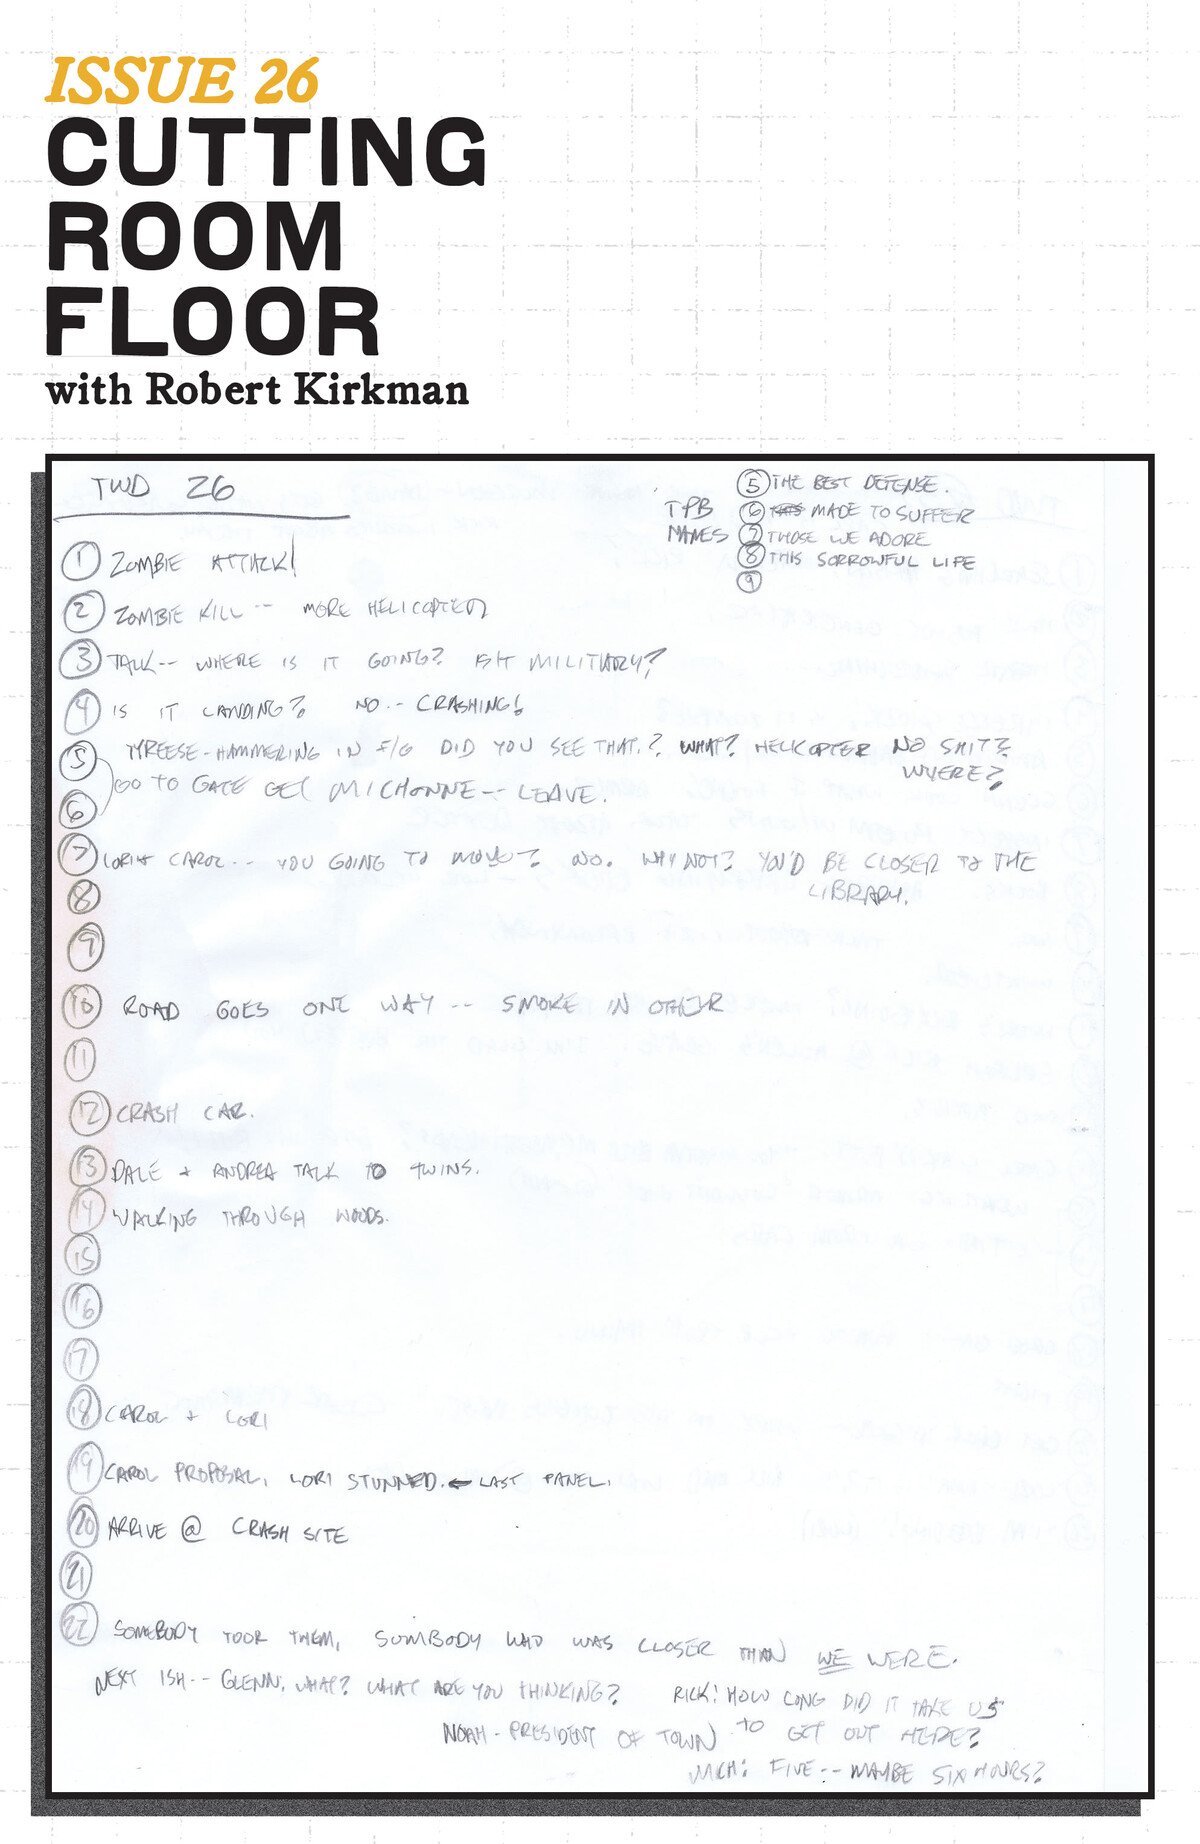 ISSUE 26
CUTTING
ROOM
FLOOR
with Robert Kirkman
TWD 26
TPB
NAMES
⑤ THE BEST DEFENSE.
⑥ MADE TO SUFFER
⑦ THOSE WE ADORE
⑧ THIS SORROWFUL LIFE
⑨
① ZOMBIE ATTACK!
② ZOMBIE KILL -- MORE HELICOPTER
③ TALK -- WHERE IS IT GOING? MILITARY?
④ IS IT LANDING? NO -- CRASHING!
⑤ TYREESE - HAMMERING IN F/G DID YOU SEE THAT? WHAT? HELICOPTER NO SHIT?
WHERE?
⑥ GO TO GATE GET MICHONNE -- LEAVE.
⑦ LORI + CAROL -- YOU GOING TO MOVE? NO. WHY NOT? YOU'D BE CLOSER TO THE
LIBRARY.
⑧
⑨
⑩ ROAD GOES ONE WAY -- SMOKE IN OTHER
⑪
⑫ CRASH CAR.
⑬ DALE + ANDREA TALK TO TWINS.
⑭ WALKING THROUGH WOODS.
⑮
⑯
⑰
⑱ CAROL + LORI
⑲ CAROL PROPOSAL, LORI STUNNED. ← LAST PANEL.
⑳ ARRIVE @ CRASH SITE
㉑
㉒ SOMEBODY TOOK THEM, SOMBODY WHO WAS CLOSER THAN WE WERE.
NEXT ISH -- GLENN, WHAT? WHAT ARE YOU THINKING? RICK! HOW LONG DID IT TAKE US
NOAH - PRESIDENT OF TOWN TO GET OUT HERE?
MICH: FIVE -- MAYBE SIX HOURS?